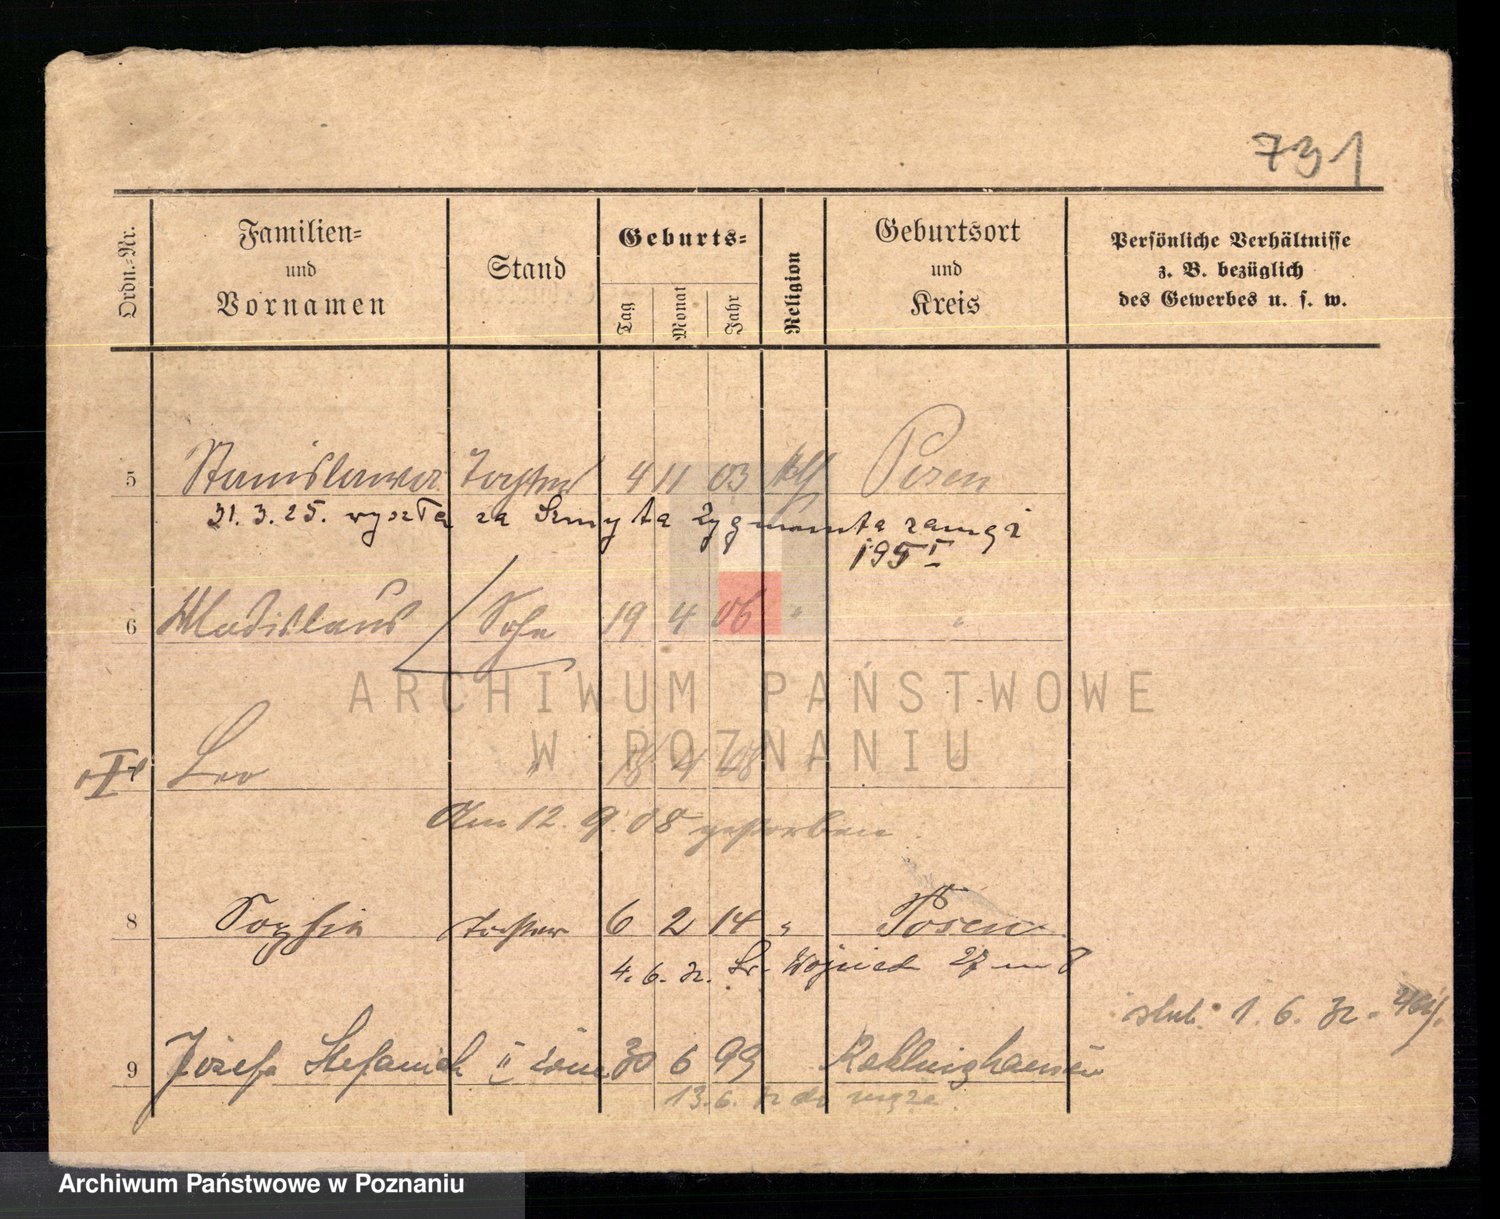 731
Ordn.=Nr.
Familien=
und
Vornamen
Stand
Geburts=
Tag
Monat
Jahr
Religion
Geburtsort
und
Kreis
Persönliche Verhältnisse
z. B. bezüglich
des Gewerbes u. s. w.
5 Stanislawa Tochter 4 11 03 kth Posen
31. 3. 25. wyszła za Szmyta Zygmunta
6 Wladislaus Sohn 19 4 06 " "
ARCHIWUM PAŃSTWOWE
W POZNANIU
Leo " 18 4 08
Am 12. 9. 08 gestorben.
8 Sophie Tochter 6 2 14 " Posen
4. 6. 32. Św. Wojciech 27 m 8
ślub. 1. 6. 32.
9 Józefa Stefaniak II żona 30 6 99
13. 6. 32 do męża
Archiwum Państwowe w Poznaniu